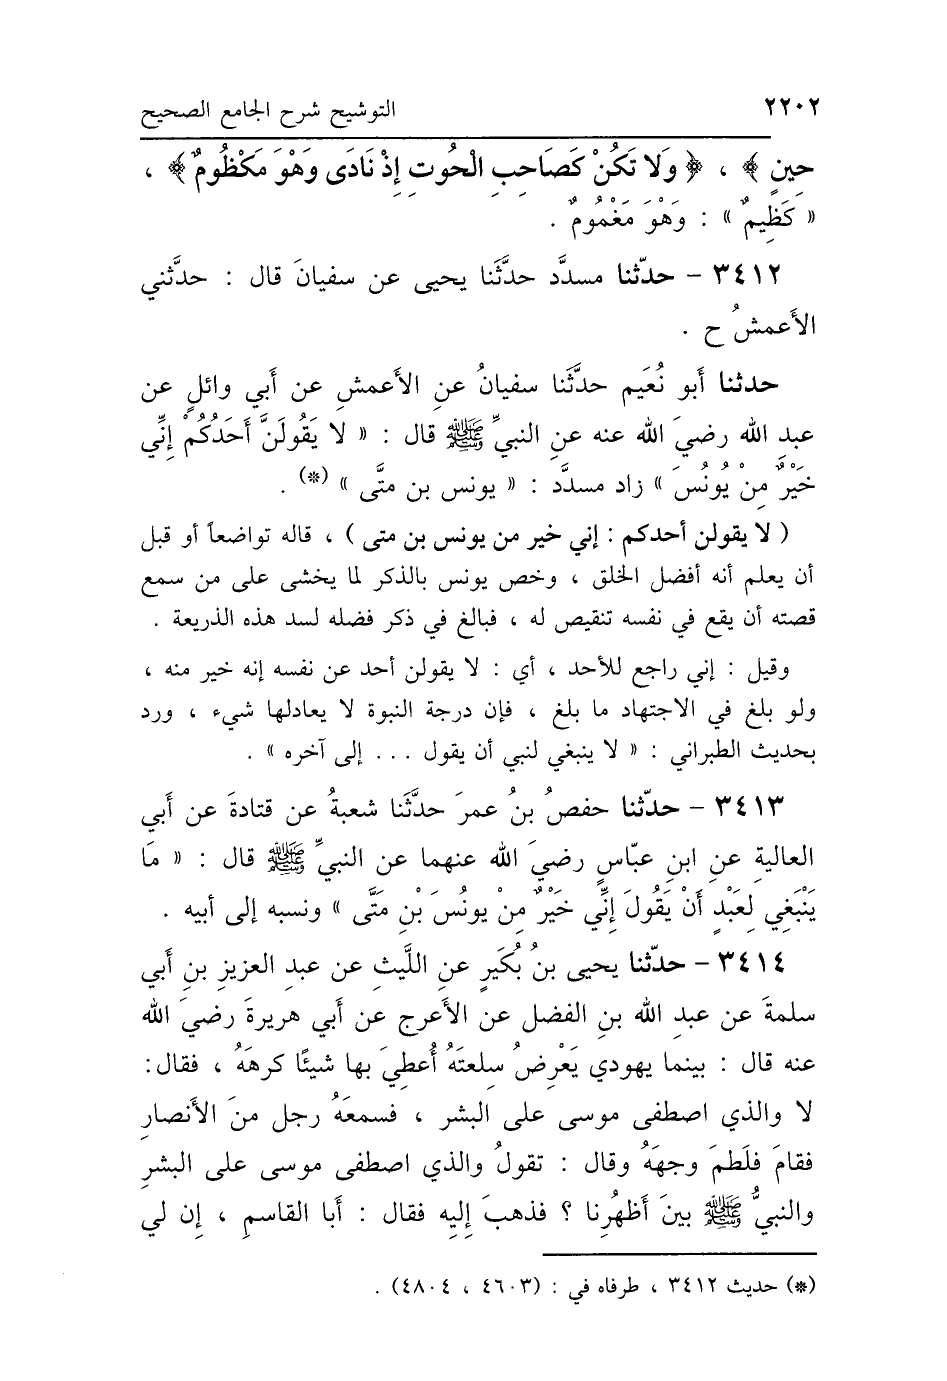 ٢٢٠٢ التوشيح شرح الجامع الصحيح
حِينٍ ﴾ ، ﴿ وَلَا تَكُنْ كَصَاحِبِ الْحُوتِ إِذْ نَادَى وَهْوَ مَكْظُومٌ ﴾ ،
« كَظِيمٌ » : وَهْوَ مَغْمُومٌ .
٣٤١٢ - حدّثنا مسدَّد حدَّثَنا يحيى عن سفيانَ قال : حدَّثني
الأَعمشُ ح .
حدثنا أبو نُعَيم حدَّثَنا سفيانُ عنِ الأَعمشِ عن أَبي وائلٍ عن
عبدِ الله رضيَ الله عنه عنِ النبيِّ ﷺ قال : « لا يَقُولَنَّ أَحَدُكُمْ إِنِّي
خَيْرٌ مِنْ يُونُسَ » زاد مسدَّد : « يونس بن متَّى » (*) .
( لا يقولن أحدكم : إني خير من يونس بن متى ) ، قاله تواضعاً أو قبل
أن يعلم أنه أفضل الخلق ، وخص يونس بالذكر لما يخشى على من سمع
قصته أن يقع في نفسه تنقيص له ، فبالغ في ذكر فضله لسد هذه الذريعة .
وقيل : إني راجع للأحد ، أي : لا يقولن أحد عن نفسه إنه خير منه ،
ولو بلغ في الاجتهاد ما بلغ ، فإن درجة النبوة لا يعادلها شيء ، ورد
بحديث الطبراني : « لا ينبغي لنبي أن يقول ... إلى آخره » .
٣٤١٣ - حدّثنا حفصُ بنُ عمرَ حدَّثَنا شعبةُ عن قتادةَ عن أَبي
العاليةِ عنِ ابنِ عبّاسٍ رضيَ الله عنهما عن النبيِّ ﷺ قال : « مَا
يَنْبَغِي لِعَبْدٍ أَنْ يَقُولَ إِنِّي خَيْرٌ مِن يونُسَ بْنِ مَتَّى » ونسبه إلى أبيه .
٣٤١٤ - حدّثنا يحيى بنُ بُكَيرٍ عنِ اللَّيثِ عن عبدِ العزيزِ بنِ أَبي
سلمةَ عن عبدِ الله بنِ الفضل عن الأَعرجِ عن أَبي هريرةَ رضيَ الله
عنه قال : بينما يهودي يَعْرِضُ سِلعتَهُ أُعطِيَ بها شيئًا كرهَهُ ، فقال:
لا والذي اصطفى موسى على البشر ، فسمعَهُ رجل منَ الأَنصارِ
فقامَ فلَطمَ وجهَهُ وقال : تقولُ والذي اصطفى موسى على البشرِ
والنبيُّ ﷺ بينَ أَظهُرِنا ؟ فذهبَ إِليه فقال : أَبا القاسمِ ، إِن لي
(*) حديث ٣٤١٢ ، طرفاه في : (٤٦٠٣ ، ٤٨٠٤) .